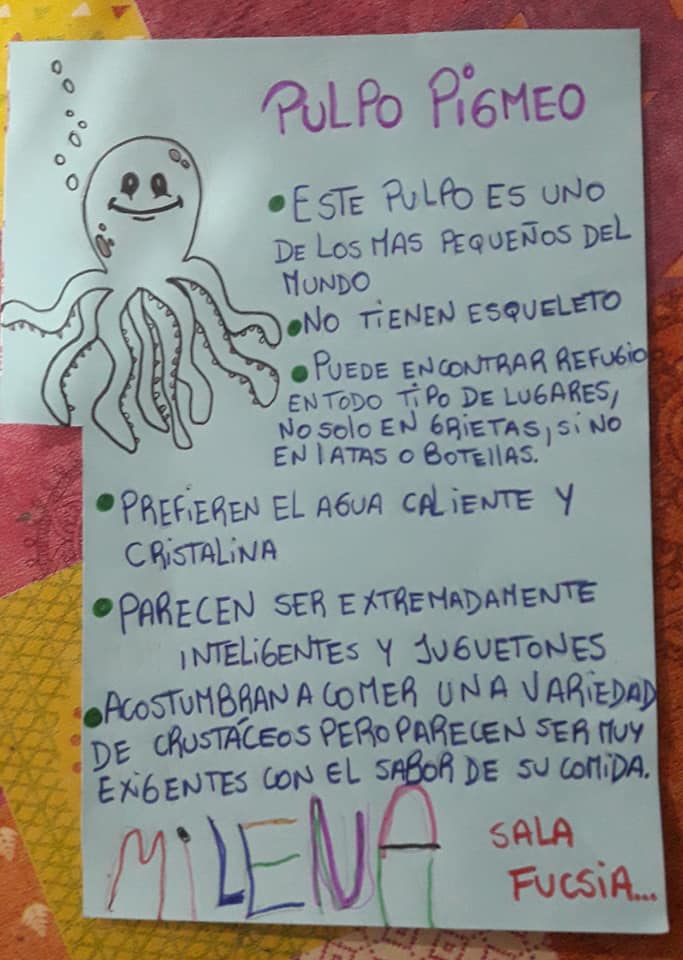 PULPO PiGMEO
• ESTE PULPO ES UNO
DE LOS MAS PEQUEÑOS DEL
MUNDO
• NO TIENEN ESQUELETO
• PUEDE ENCONTRAR REFUGIO
EN TODO TIPO DE LUGARES,
NO SOLO EN GRIETAS, SI NO
EN LATAS O BOTELLAS.
• PREFIEREN EL AGUA CALIENTE Y
CRISTALINA
• PARECEN SER EXTREMADAMENTE
INTELIGENTES Y JUGUETONES
• ACOSTUMBRAN A COMER UNA VARIEDAD
DE CRUSTÁCEOS PERO PARECEN SER MUY
EXIGENTES CON EL SABOR DE SU COMIDA.
MiLENA
SALA
FUCSIA...